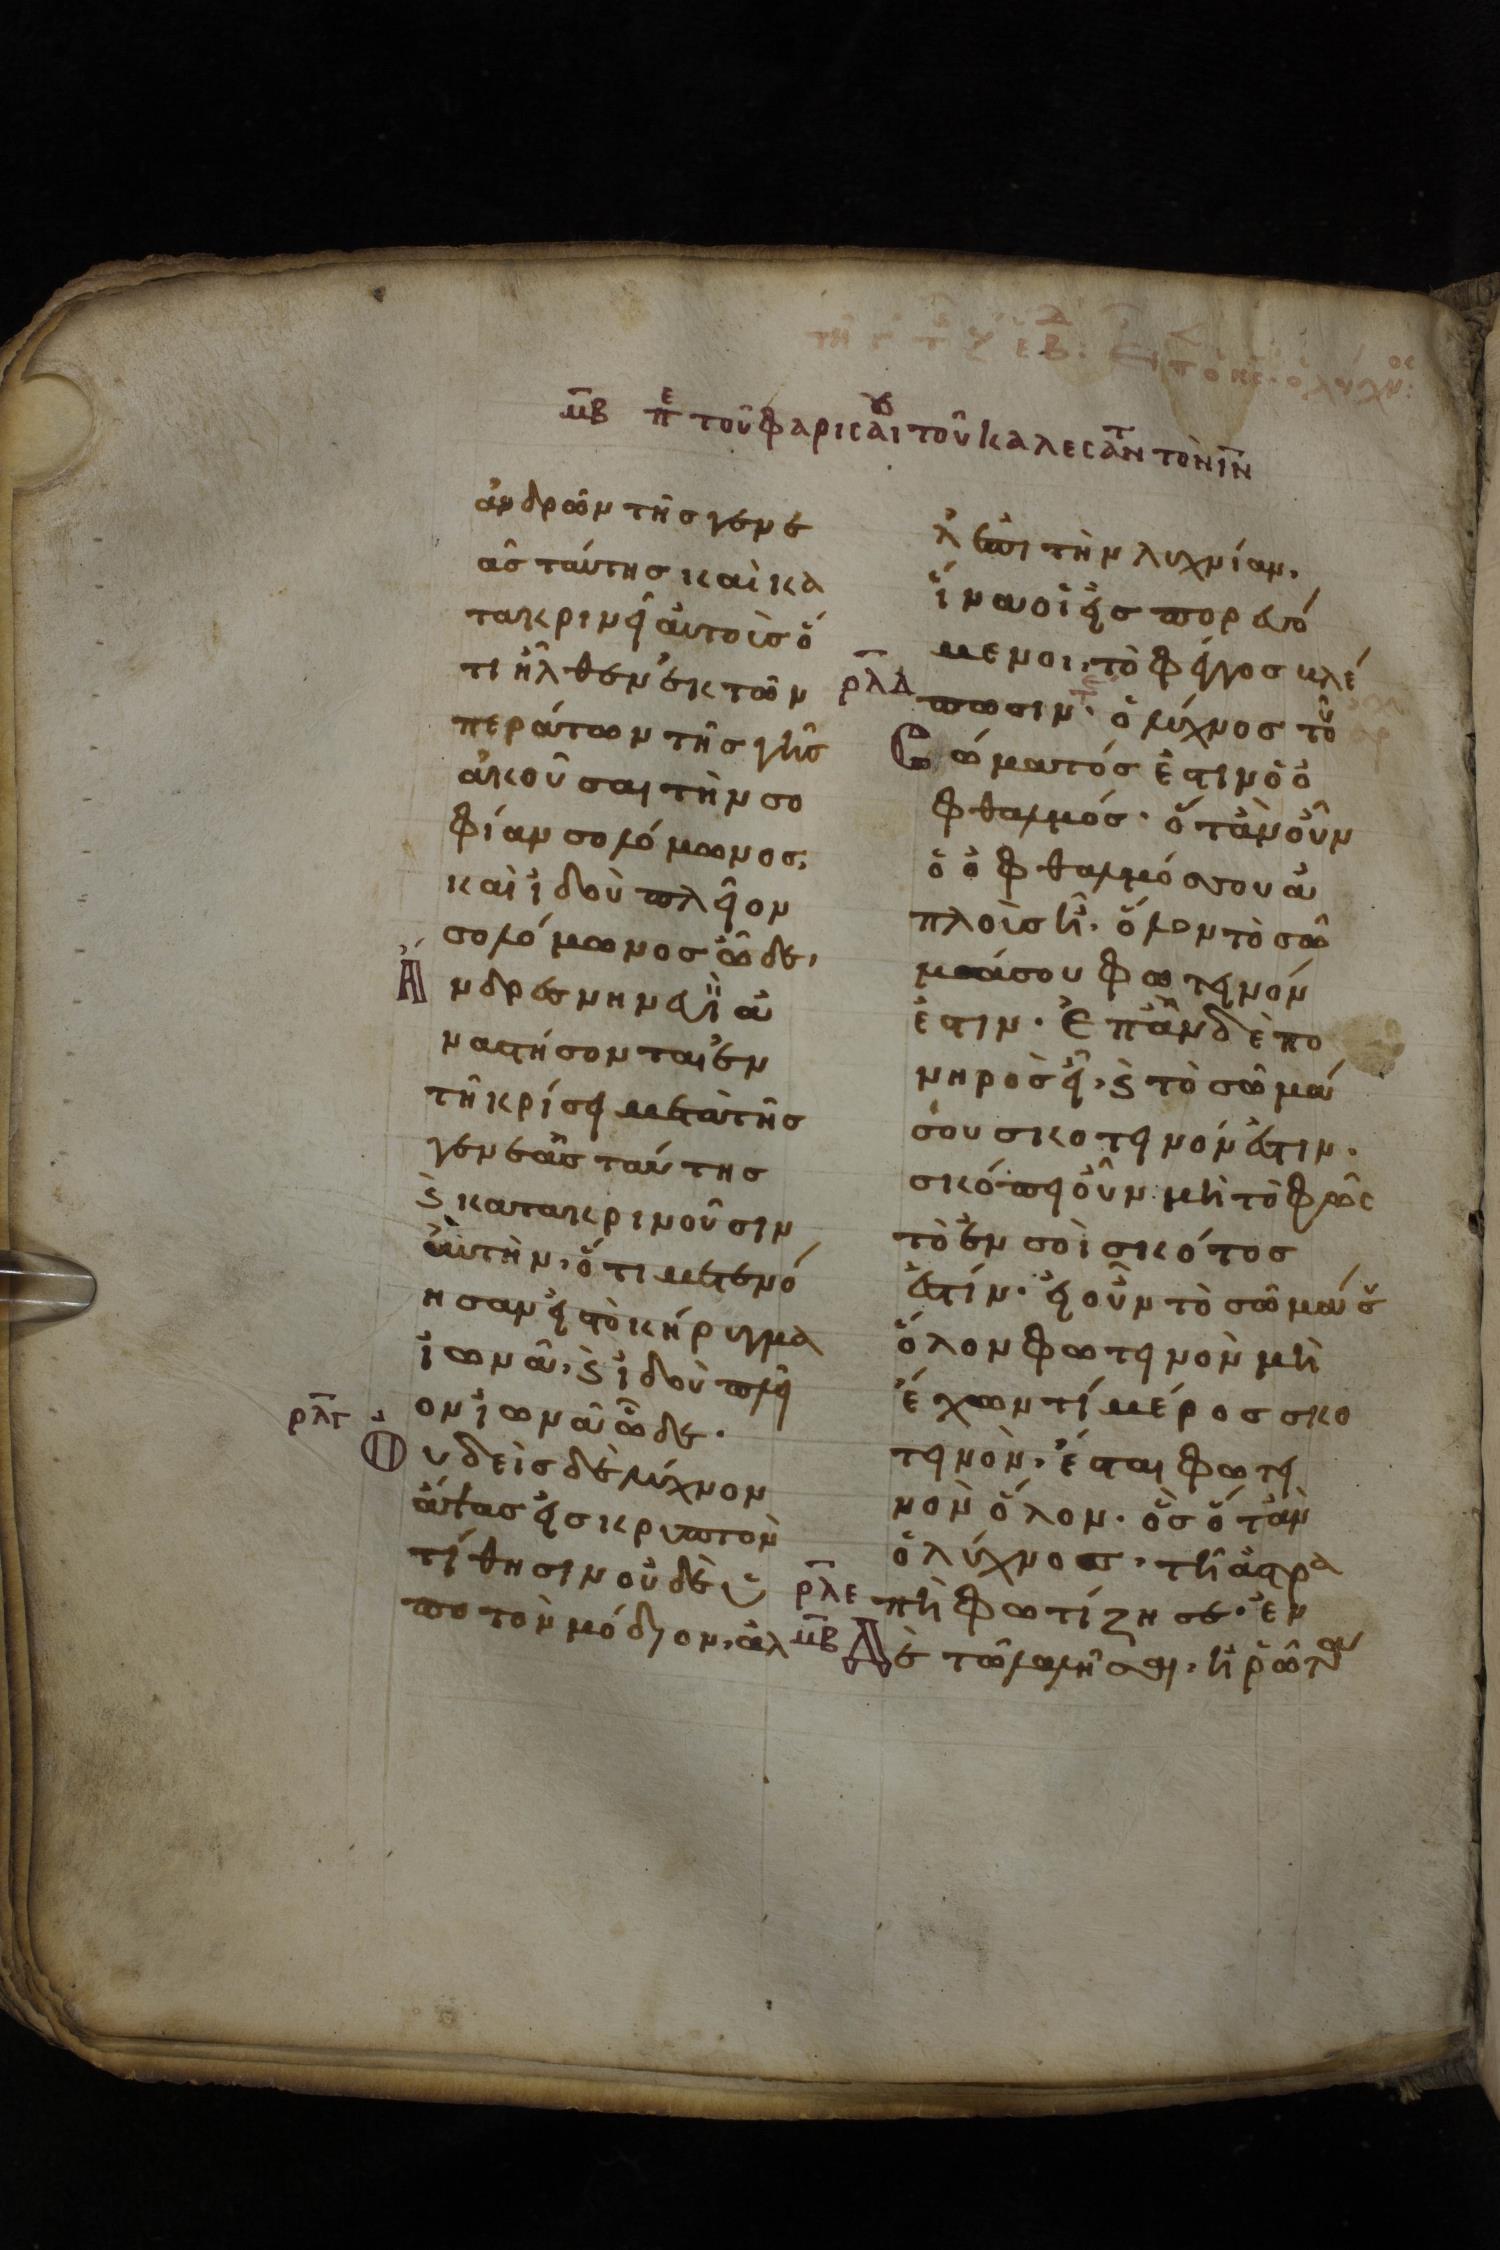 μβ πε τοῦ φαρισαίου τοῦ καλεσαντ τὸν ιν
ἀνδρῶν τῆς γενε
ᾶς ταύτης καὶ κα
τακρινεῖ αὐτοὺς ὅ
τι ἦλθεν ἐκ τῶν
περάτων τῆς γῆς
ἀκοῦσαι τὴν σο
φίαν σολόμωνος,
καὶ ἰδοὺ πλεῖον
σολόμωνος ὧδε,
Ἄνδρες νηνευῒ ἀ
ναστήσονται ἐν
τῆ κρίσει μετὰ τῆς
γενεᾶς ταύτης
ϗ κατακρινοῦσιν
αὐτὴν, ὅτι μετενό
ησαν εἰς τὸ κήρυγμα
ἰωνᾶ, ϗ ἰδοὺ πλεῖ
ον ἰωνᾶ ὧδε.
ρλγ Οὐδεὶς δὲ λύχνον
ἅψας εἰς κρυπτὸν
τίθησιν οὐδὲ ὑ
πο τὸν μόδιον, ἀλ
λ ἐπὶ τὴν λυχνίαν,
ἵνα οἱ εἰσπορευό
μενοι, τὸ φέγγος βλέ
ρλδ πωσιν. ὁ λύχνος τοῦ
Σώματός ἐστιν ὁ ὀ
φθαλμός. ὅταν οὖν
ὁ ὀφθαλμός σου ἁ
πλοὺς ἦ. ὅλον τὸ σῶ
μά σου φωτεινόν
ἐστιν. Ἐπὰν δὲ πο
νηρὸς ἦ, ϗ τὸ σῶμά
σου σκοτεινόν ἐστιν.
σκόπει οὖν μὴ τὸ φῶς
τὸ ἐν σοὶ σκότος
ἐστίν. εἰ οὖν τὸ σῶμά σου
ὅλον φωτεινὸν μὴ
ἔχων τί μέρος σκο
τεινὸν, ἔσται φωτει
νὸν ὅλον. ὡς ὅταν
ὁ λύχνος, τῆ ἀστρα
ρλε πῆ φωτίζη σε. ἐν
μβ Δὲ τῶ λαλῆσαι, ἠρώτα